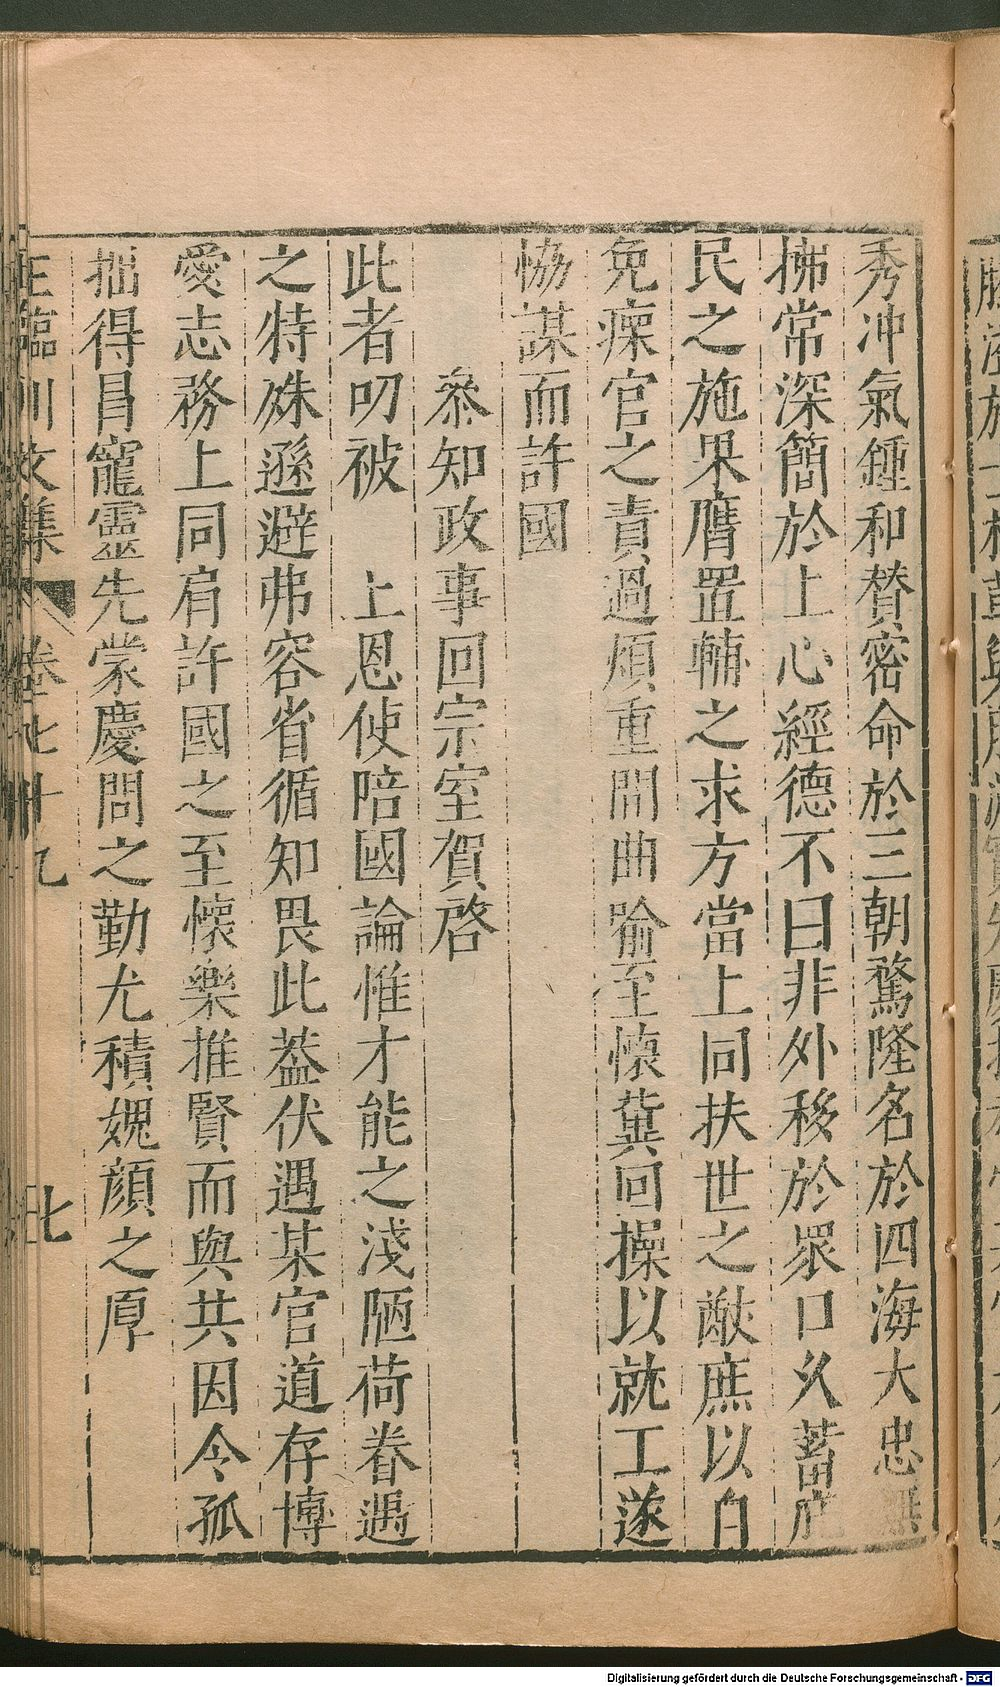 秀冲氣鍾和賛密命於三朝騖隆名於四海大忠無
拂常深簡於上心經德不曰非外移於衆口久蓄庇
民之施果膺置輔之求方當上同扶世之猷庶以自
免瘝官之責過煩重問曲喻至懷冀回操以就工遂
恊謀而許國
叅知政事回宗室賀啓
此者叨被　上恩使陪國論惟才能之淺陋荷眷遇
之特殊遜避弗容省循知畏此葢伏遇某官道存博
愛志務上同肩許國之至懷樂推賢而與共因令孤
拙得昌寵靈先蒙慶問之勤尤積媿顔之厚
王臨川文集 卷七十九 七
Digitalisierung gefördert durch die Deutsche Forschungsgemeinschaft - DFG